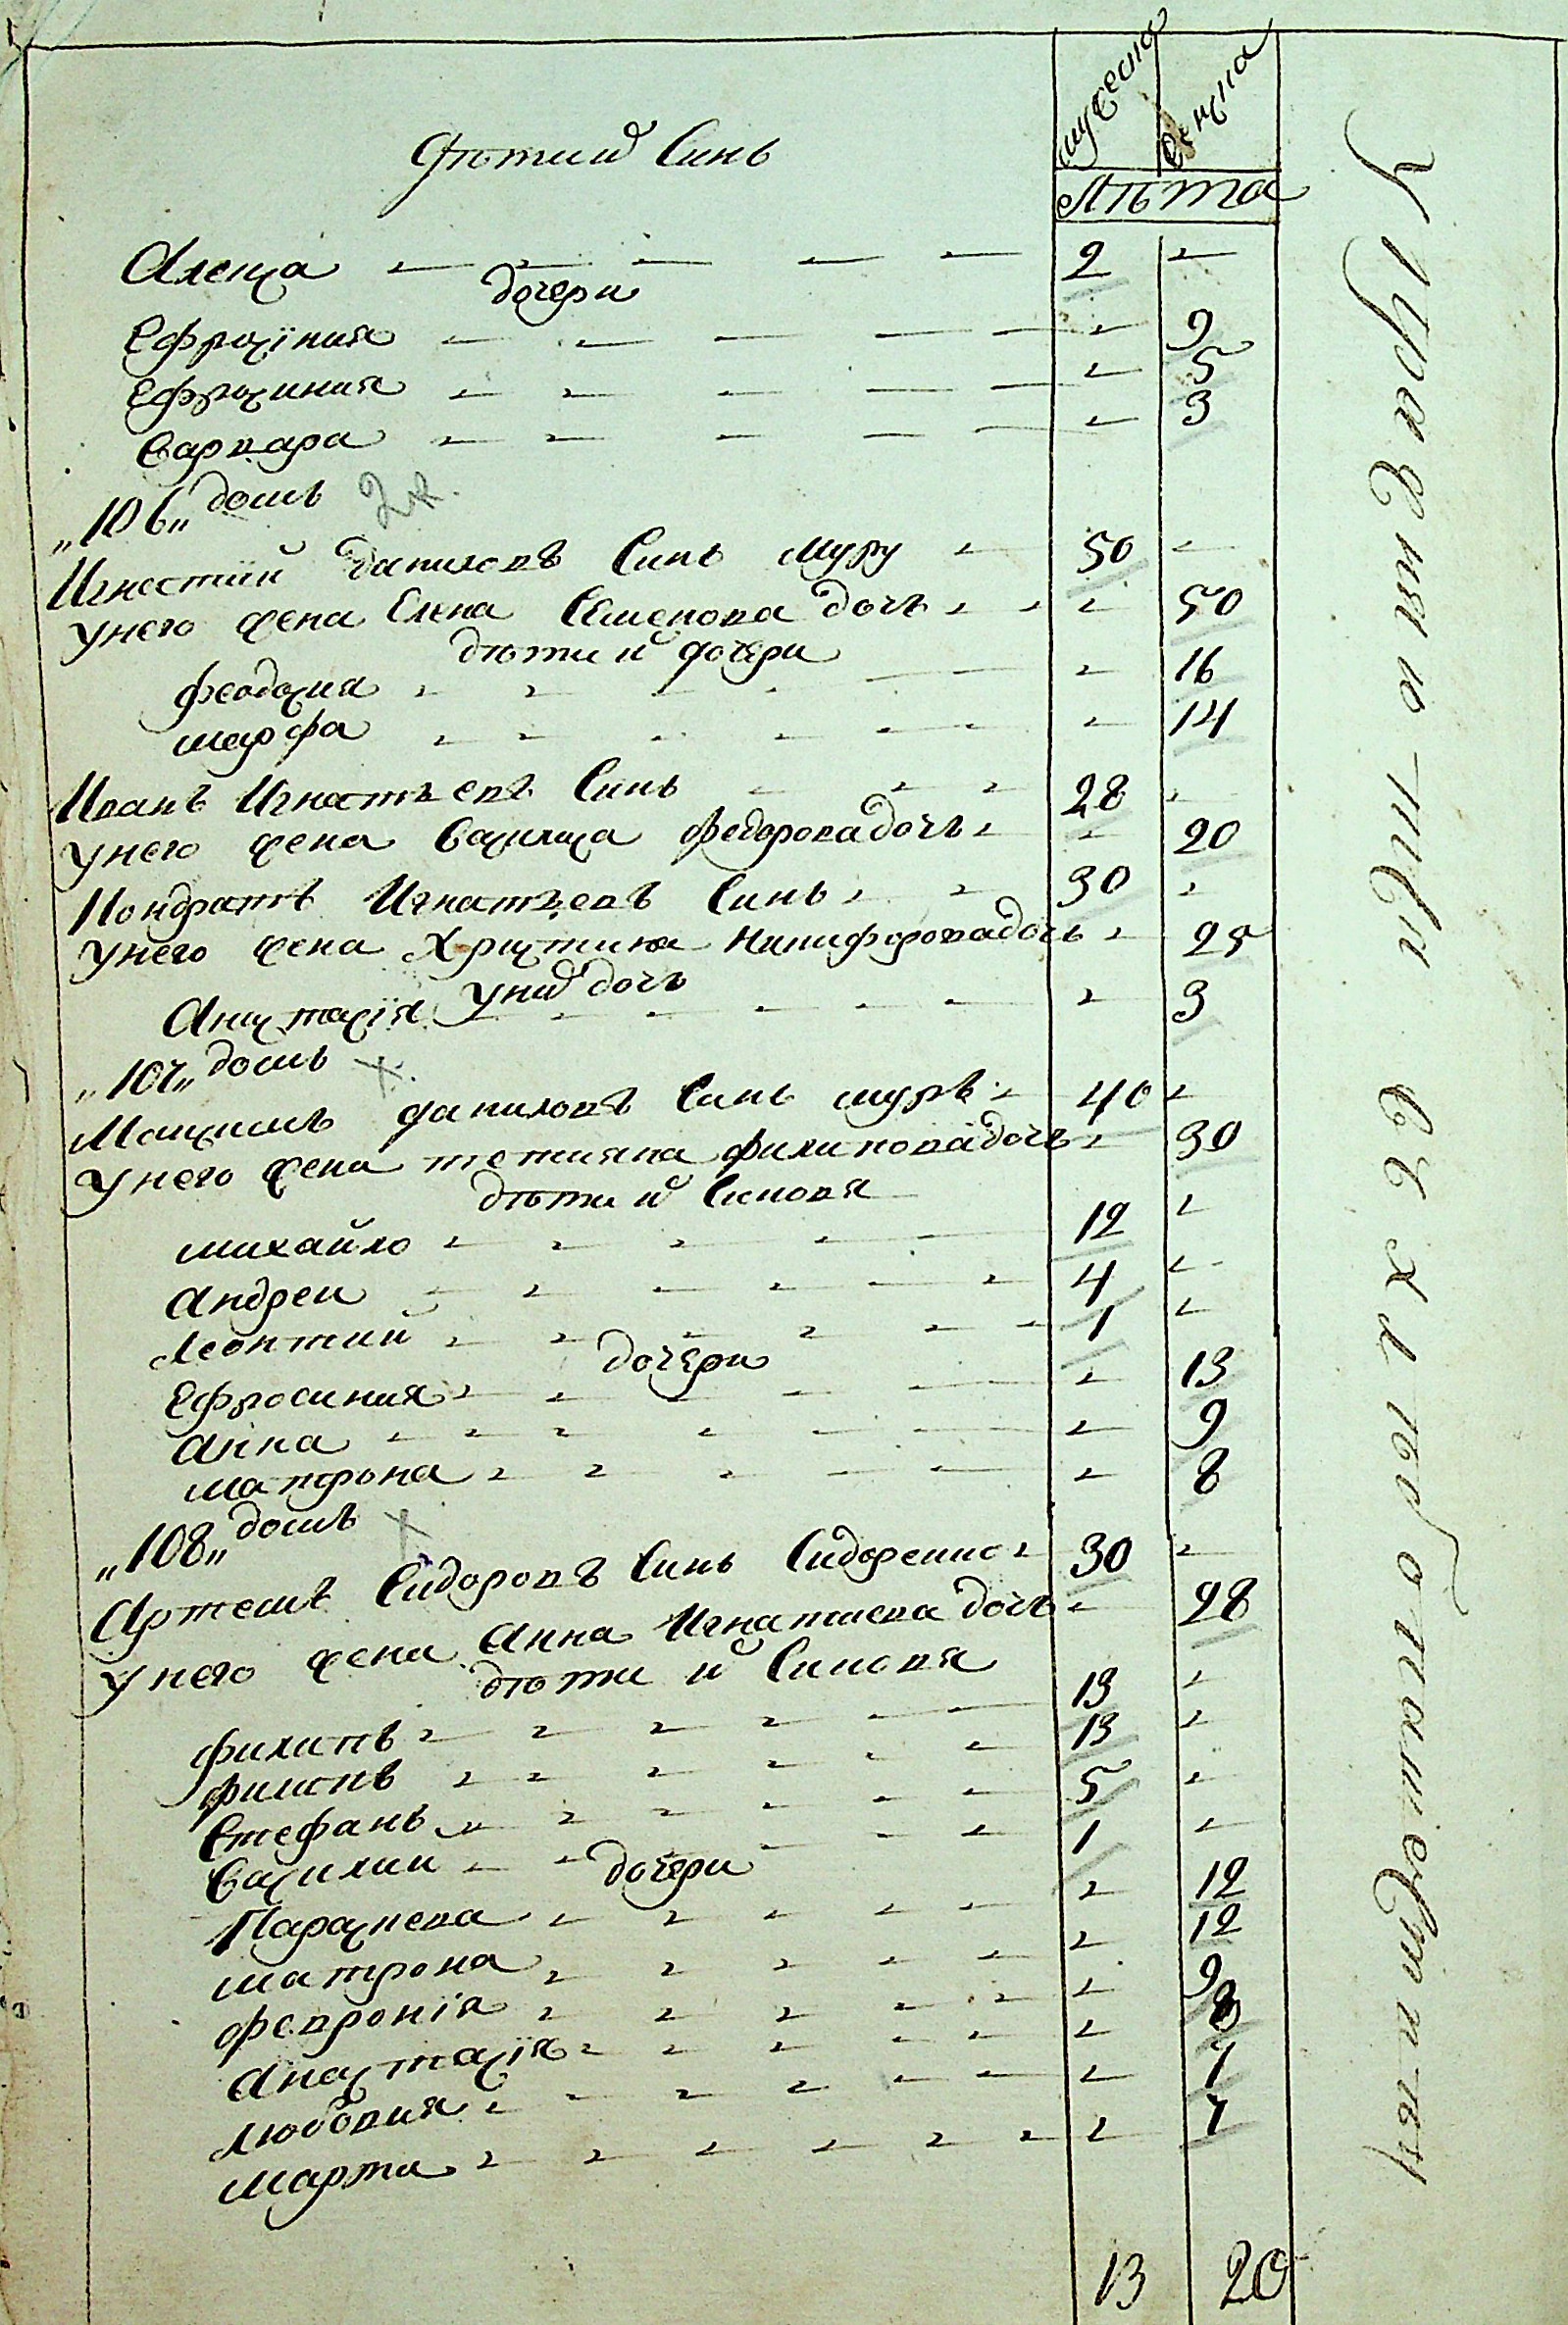 мужеска женска
Дѣтий Синъ
Лѣта
Алекса 2 —
дочери
Ефросїния — 9
Ефросиния — 5
Варвара — 3
„106„ домъ 2ж.
Игнестий Даниловъ Синъ Муру — 50 —
Унего жена Елена Семенова дочь — 50
дѣти й дочери
Феодосия — 16
марфа — 14
Иванъ Игнатъевъ Синъ 28 —
унего жена Василиса Федорова дочь — 20
Кондратъ Игнатъевъ Синъ 30 —
унего жена Христина Никифорова дочь — 25
уний дочь
Анастасїя — 3
„107„ домъ х.
Максимъ Даниловъ Синъ муръ 40 —
Унего жена тетияна филипова дочь — 30
дѣти й Синовя
михайло 12 —
Андреи 4 —
Леонтий 1 —
дочери
Ефросиния — 13
Анна — 9
матрона — 8
„108„ домъ х
Артемъ Сидоровъ Синъ Сидоренко 30 —
унего жена Анна Игнатиева дочь — 28
дѣти й Синовя
филипъ 13 —
филипъ 13 —
Стефанъ 5 —
Василии 1 —
дочери
Параскева — 12
матрона — 12
февронїя — 9
Анастасїя — 8
любовия — 7
марта — 7
13 20